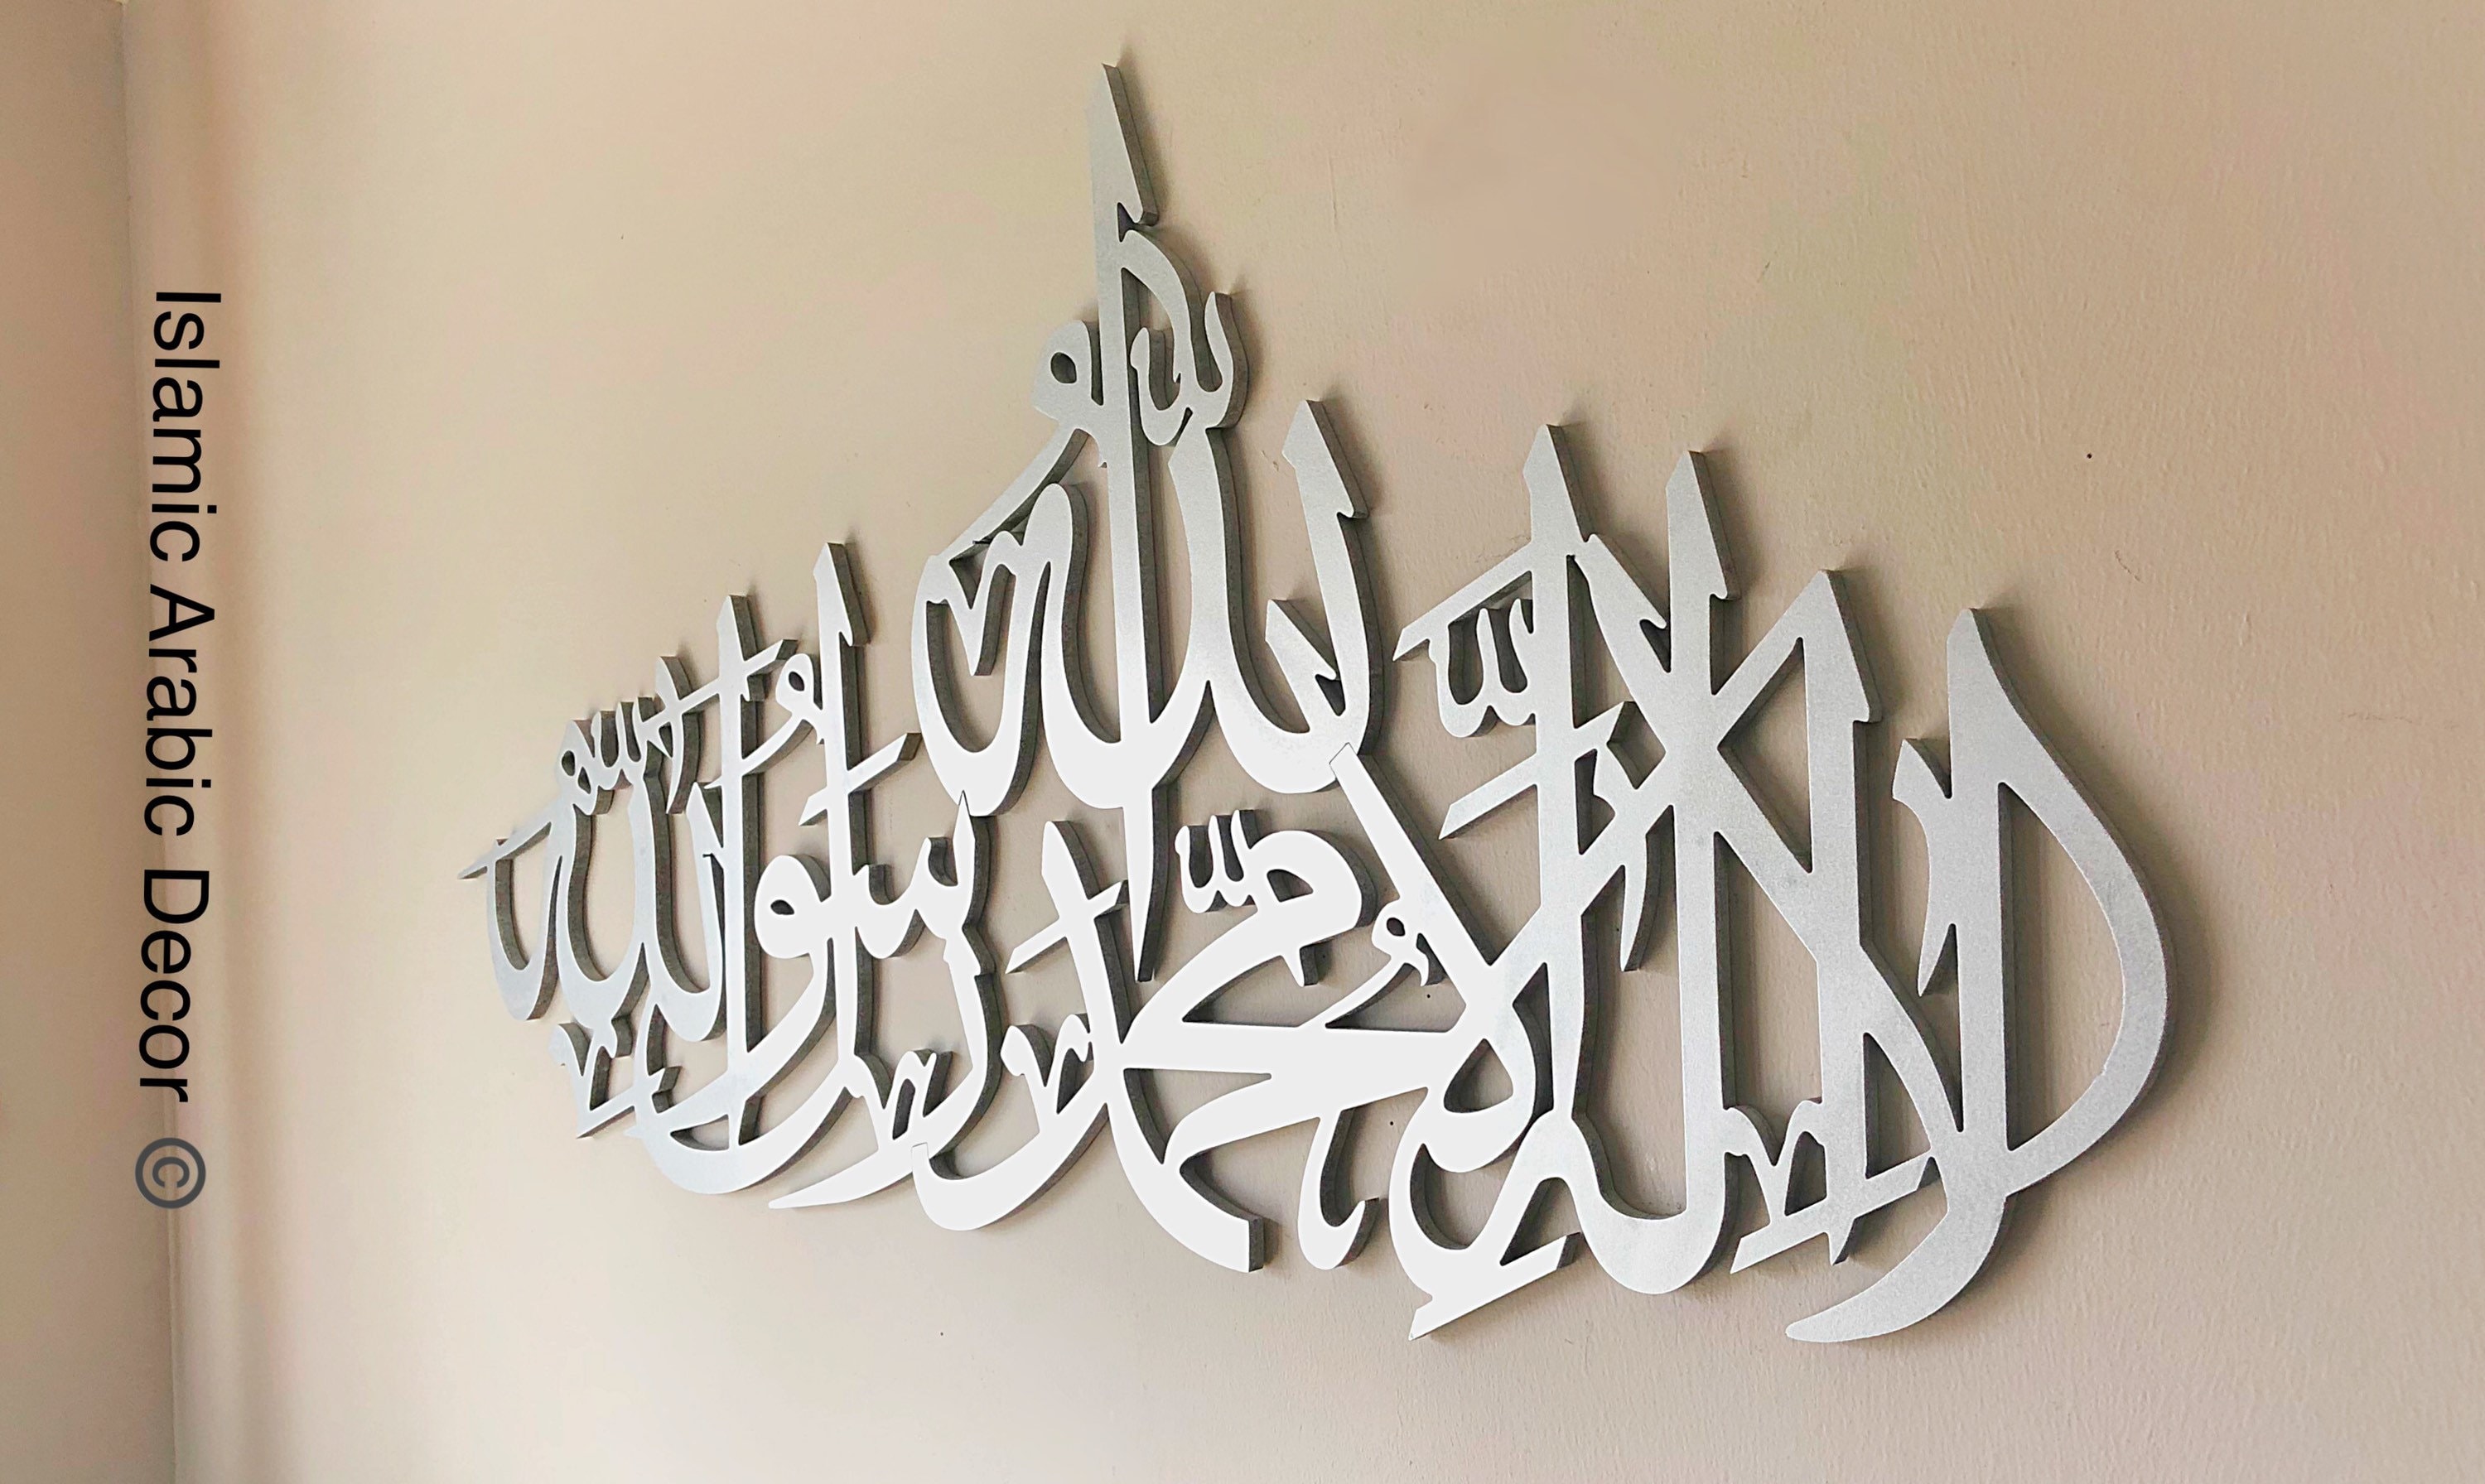 لا إله إلا الله محمد رسول الله
Islamic Arabic Decor ©